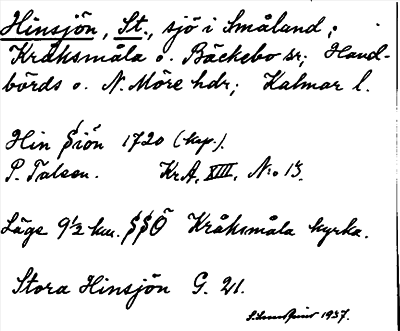 Hinsjön, St., sjö i Småland;
Kråksmåla o. Bäckebo sr; Hand-
börds o. N. Möre hdr; Kalmar l.
Hin Siön 1720 (kop.).
P. Talsen. KrA, XIII, No 13.
Läge 9½ km. SSÖ Kråksmåla kyrka.
Stora Hinsjön G. 21.
1937.